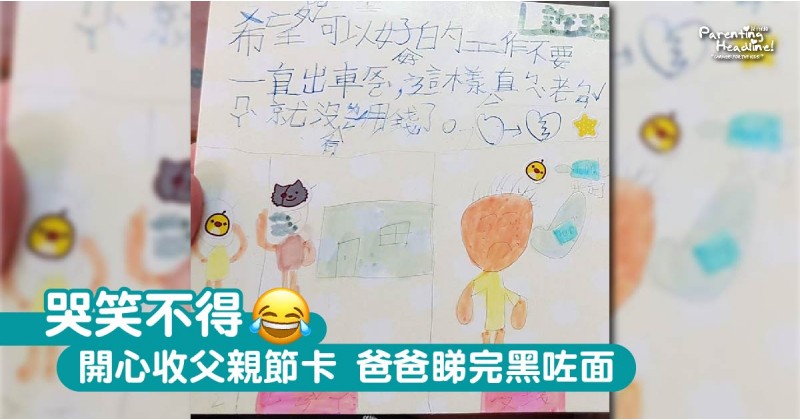 希望可以好好的工作不要
一直出車，這樣直老
就沒有用錢了。
Parenting
Headline!
哭笑不得
開心收父親節卡 爸爸睇完黑咗面